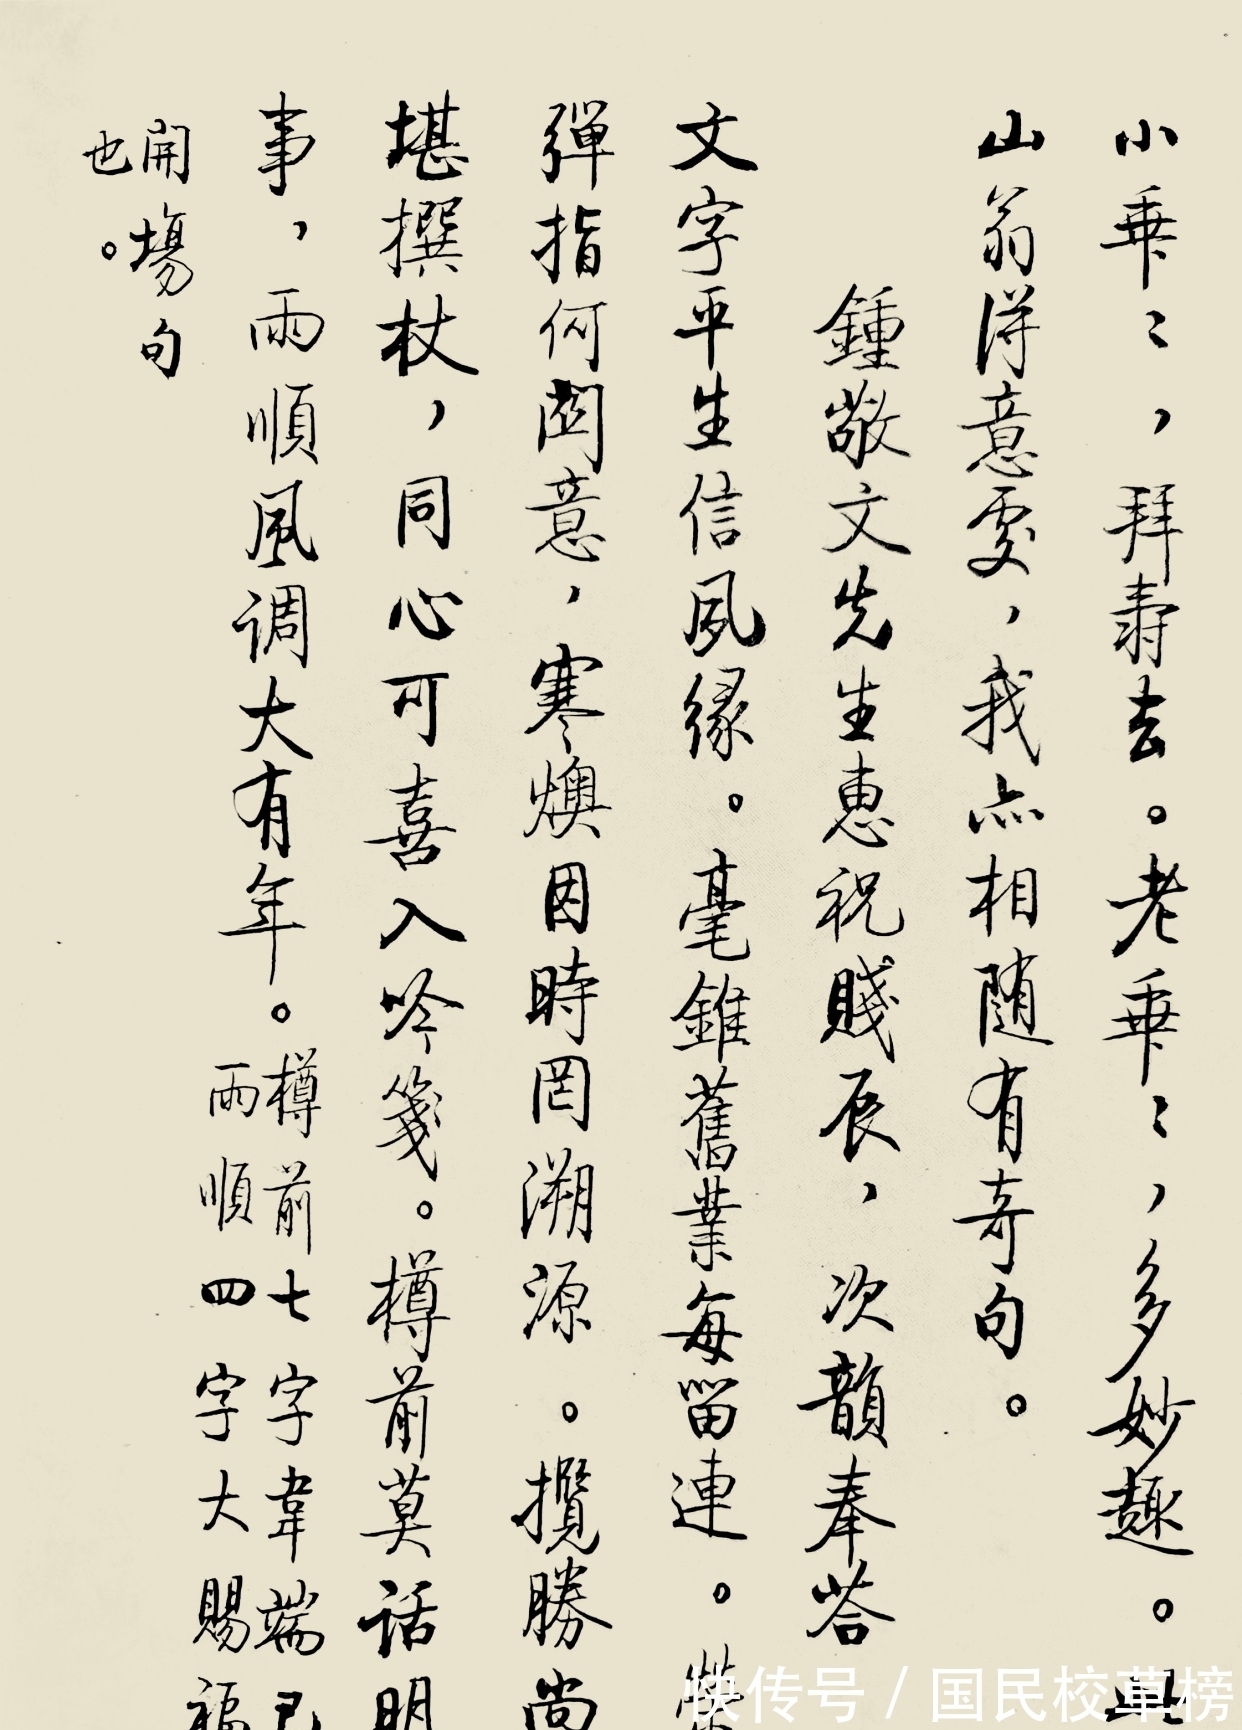 小乘〻，拜壽去。老乘〻，多妙趣。
山翁得意處，我亦相随有奇句。
鍾敬文先生惠祝賤辰，次韻奉荅
文字平生信夙缘。毫錐舊業每留連。榮
彈指何関意，寒燠因時罔溯源。攬勝尚
堪撰杖，同心可喜入吟箋。樽前莫話明
事，雨順風调大有年。樽前七字韋端己
雨順四字大賜福
開場句
也。
快传号/国民校草榜